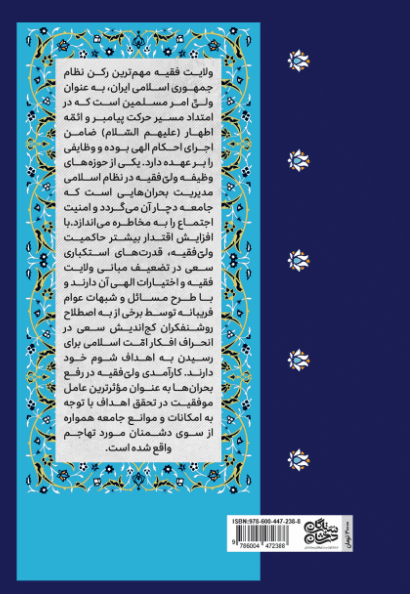 ولایت فقیه مهم‌ترین رکن نظام
جمهوری اسلامی ایران، به عنوان
ولیّ امر مسلمین است که در
امتداد مسیر حرکت پیامبر و ائمّه
اطهار (علیهم السّلام) ضامن
اجرای احکام الهی بوده و وظایفی
را بر عهده دارد. یکی از حوزه‌های
وظیفه ولیّ‌فقیه در نظام اسلامی
مدیریت بحران‌هایی است که
جامعه دچار آن می‌گردد و امنیت
اجتماع را به مخاطره می‌اندازد. با
افزایش اقتدار بیشتر حاکمیت
ولیّ‌فقیه، قدرت‌های استکباری
سعی در تضعیف مبانی ولایت
فقیه و اختیارات الهی آن دارند و
با طرح مسائل و شبهات عوام
فریبانه توسط برخی از به اصطلاح
روشنفکران کج‌اندیش سعی در
انحراف افکار امّت اسلامی برای
رسیدن به اهداف شوم خود
دارند. کارآمدی ولیّ‌فقیه در رفع
بحران‌ها به عنوان مؤثرترین عامل
موفقیت در تحقق اهداف با توجه
به امکانات و موانع جامعه همواره
از سوی دشمنان مورد تهاجم
واقع شده است.
ISBN:978-600-447-238-8
9 786004 472388